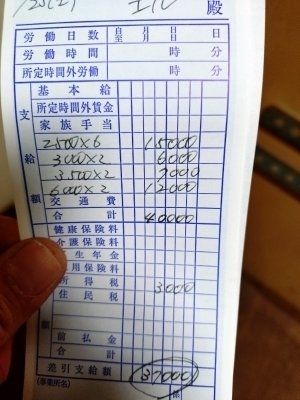 殿
労働日数 自 至 月 月 日 日 日
労働時間 時 分
所定時間外労働 時 分
支給額
基本給
所定時間外賃金
家族手当
2500×6 15000
3000×2 6000
3500×2 7000
6000×2 12000
交通費
合計 40000
健康保険料
介護保険料
生年金
用保険料
所得税 3000
住民税
額
前払金
合計
差引支給額 37000
(事業所名) 係